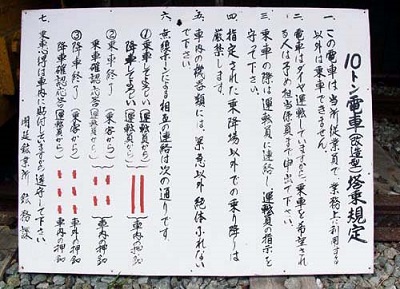 10トン電車(改造型)搭乗規定
一、この電車は当所従業員で業務上利用する
以外は乗車できません。
二、電車はダイヤ運転していますから、乗車を希望され
る人は予め担当係員まで申出て下さい。
三、乗車の際は運転員に連絡し運転員の指示を
守って下さい。
四、指定された乗降場以外での乗り降りは
厳禁します。
五、車内の機器類には、緊急以外絶体ふれない
で下さい。
六、無線ブザによる相互の連絡は次の通りです。
①乗車してよろしい(運転員から)
降車してよろしい(運転員から)
車内の押釦
②乗車終了(乗客から)
乗車確認応答(運転員から)
車内の押釦
③降車終了(乗客から)
降車確認応答(運転員から)
車外の押釦
車内の押釦
七、乗車心得は車内に貼付していますから遵守して下さい
関延鉱業所 鉱務課